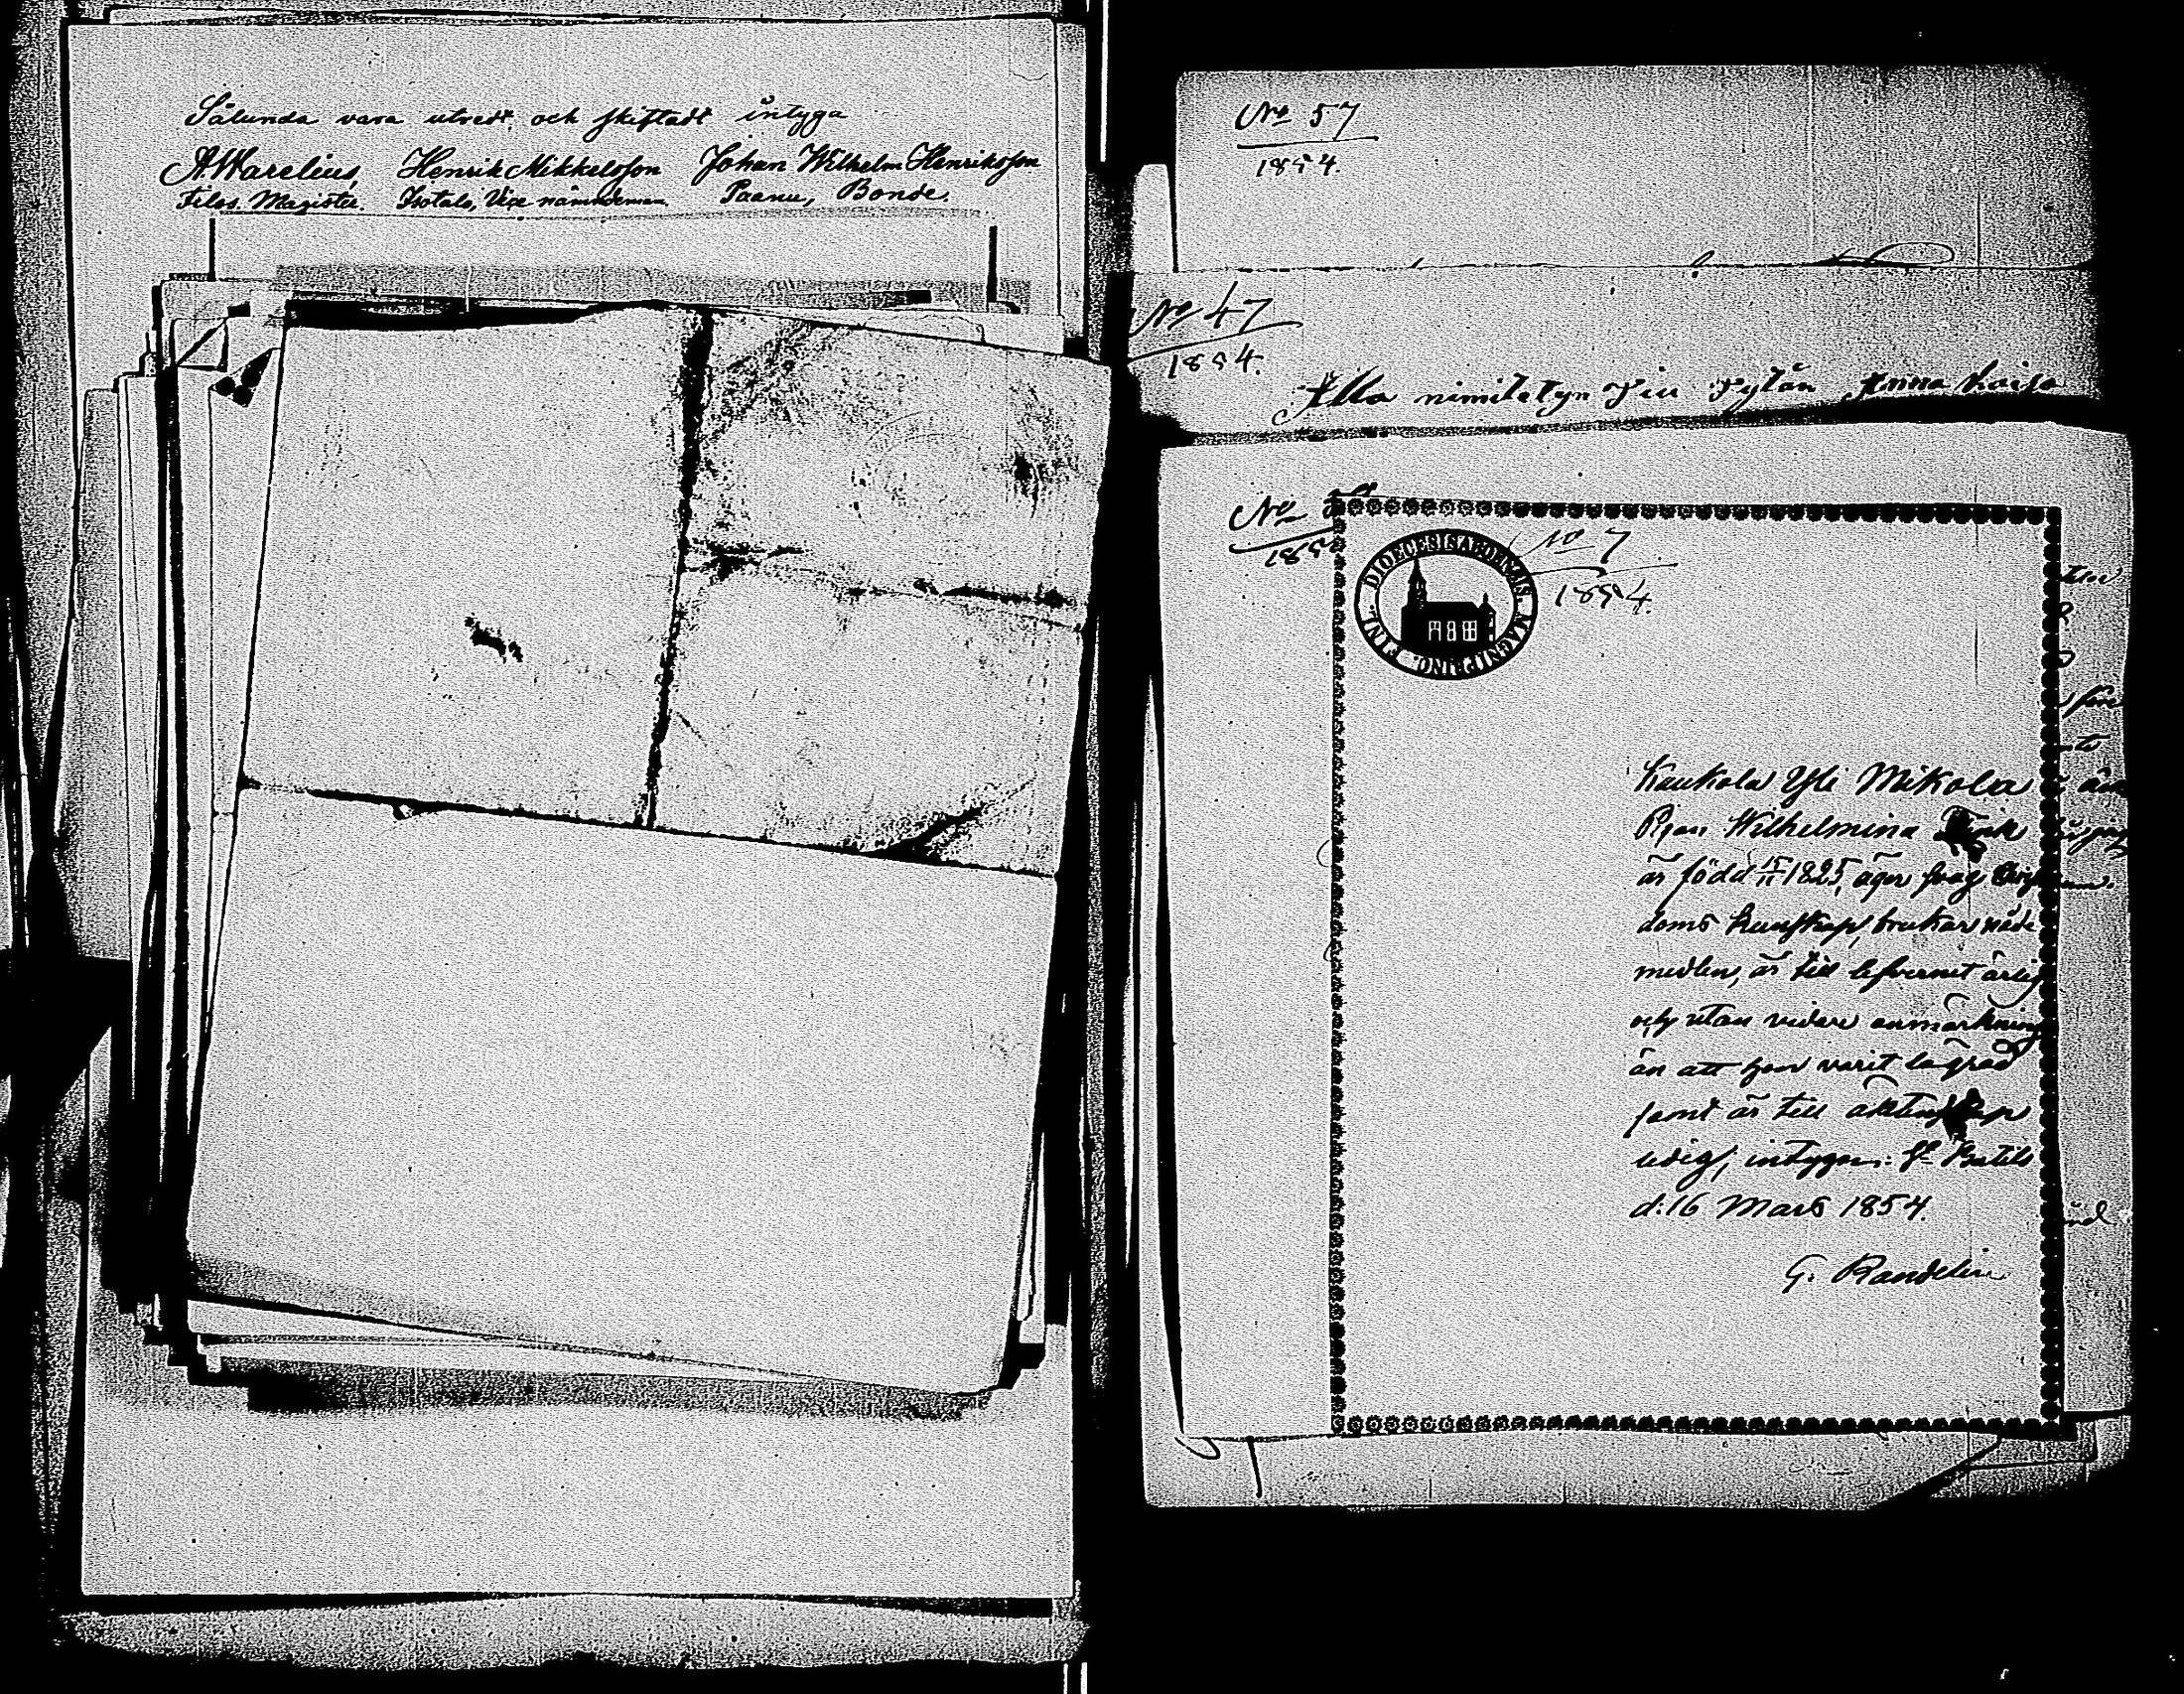 Sålunda vara utredt och skiftadt intyga
AWarelius, Henrik Mikkelsson Johan Wilhelm Henriksson
Filos. Magister. Isotalo, Vice nämndeman. Paanu, Bonde.
No 57
1854.
No 47
1854.
Alla nimitetyn Anna Kaisa
No
185
DIOECESIS ABOENSIS. MAGNI PRINC. FINL.
No 7
1854.
Kaukola Yli Mikola
Pigan Wilhelmina
är född 15/11 1825, äger svag
doms kunskap, brukar nåde
medlen, är till lefvernet ärlig
och utan vidare anmärkning
än att hon varit lägrad
samt är till äktenskap
ledig, intygar: St
d: 16 Mars 1854.
G. Randelin